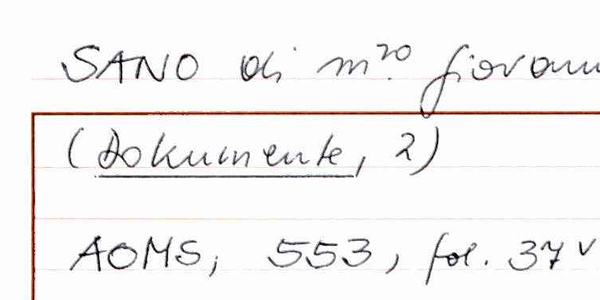 SANO di m.ro giovann
(Dokumente, 2)
AOMS, 553, fol. 37v